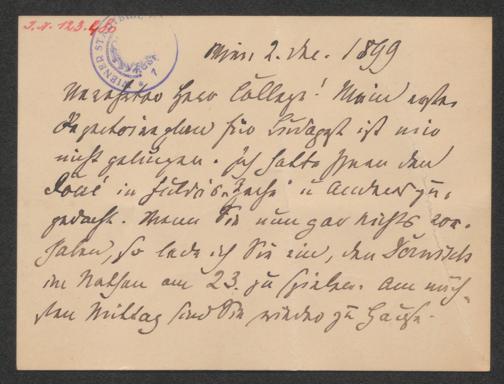 J.N. 123.450
WIENER STADTBIBL
Wien 2. Dec. 1899
Verehrter Herr College! Mein erster
Repertoireplan für Budapest ist mir
nicht gelungen. Ich hatte Ihnen den
in Fulda's u Anderes zu-
gedacht. Wenn Sie nun gar nichts vor-
haben, so lade ich Sie ein, den Derwisch
im Nathan am 23. zu spielen. Am näch-
sten Mittag sind Sie wieder zu Hause.